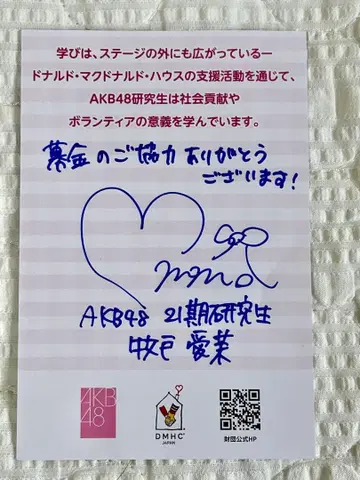 学びは、ステージの外にも広がっているー
ドナルド・マクドナルド・ハウスの支援活動を通じて、
AKB48研究生は社会貢献や
ボランティアの意義を学んでいます。
募金のご協力ありがとう
ございます!
AKB48 21期研究生
牧戸 愛茉
AKB
48
DMHC
JAPAN
財団公式HP